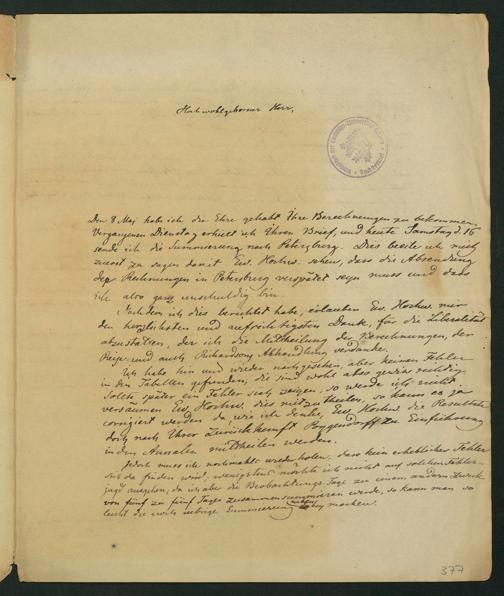 Hochwohlgeborner Herr,
Den 8 Maj habe ich die Ehre gehabt Ihre Berechnungen zu bekommen.
Vergangenen Dienstag erhielt ich Ihren Brief, und heute Samstag d. 16
sende ich die Summierung nach Petersburg. Dies beeile ich mich
zuerst zu sagen damit Ew. Hochw. sehen, dass die Absendung
der Rechnungen in Petersburg verspätet seyn muss und dass
ich also ganz unschuldig bin.
Nachdem ich dies berichtet habe, erlauben Ew. Hochw. mir
den herzlichsten und aufrichtigsten Dank, für die Liberalität
abzustatten, der ich die Mittheilung der Berechnungen, der
Reise und auch Richardsons Abhandlung verdanke.
Ich habe hin und wieder nachgesehen, aber keinen Fehler
in den Tabellen gefunden, die sind wohl also richtig.
Sollte später ein Fehler sich zeigen, so werde ich nicht
versäumen Ew. Hochw. dies mitzutheilen, so kann es ja
corrigiert werden da wie ich denke, Ew. Hochw. die Resultate
doch nach Ihrer Zurückkunft Poggendorff zu Einführung
in den Annalen mittheilen werden.
Jedoch muss ich nochmahls wiederholen, dass kein erheblicher Fehler
sich da finden wird, wenigstens möchte ich nicht auf solchen Fehler-
jagd ausgehen, da ich aber die Beobachtungs Tage zu einem andern Zweck
von fünf zu fünf Tage zusammensummieren werde, so kann man so
leicht die noch uebrige Summierung machen.
377